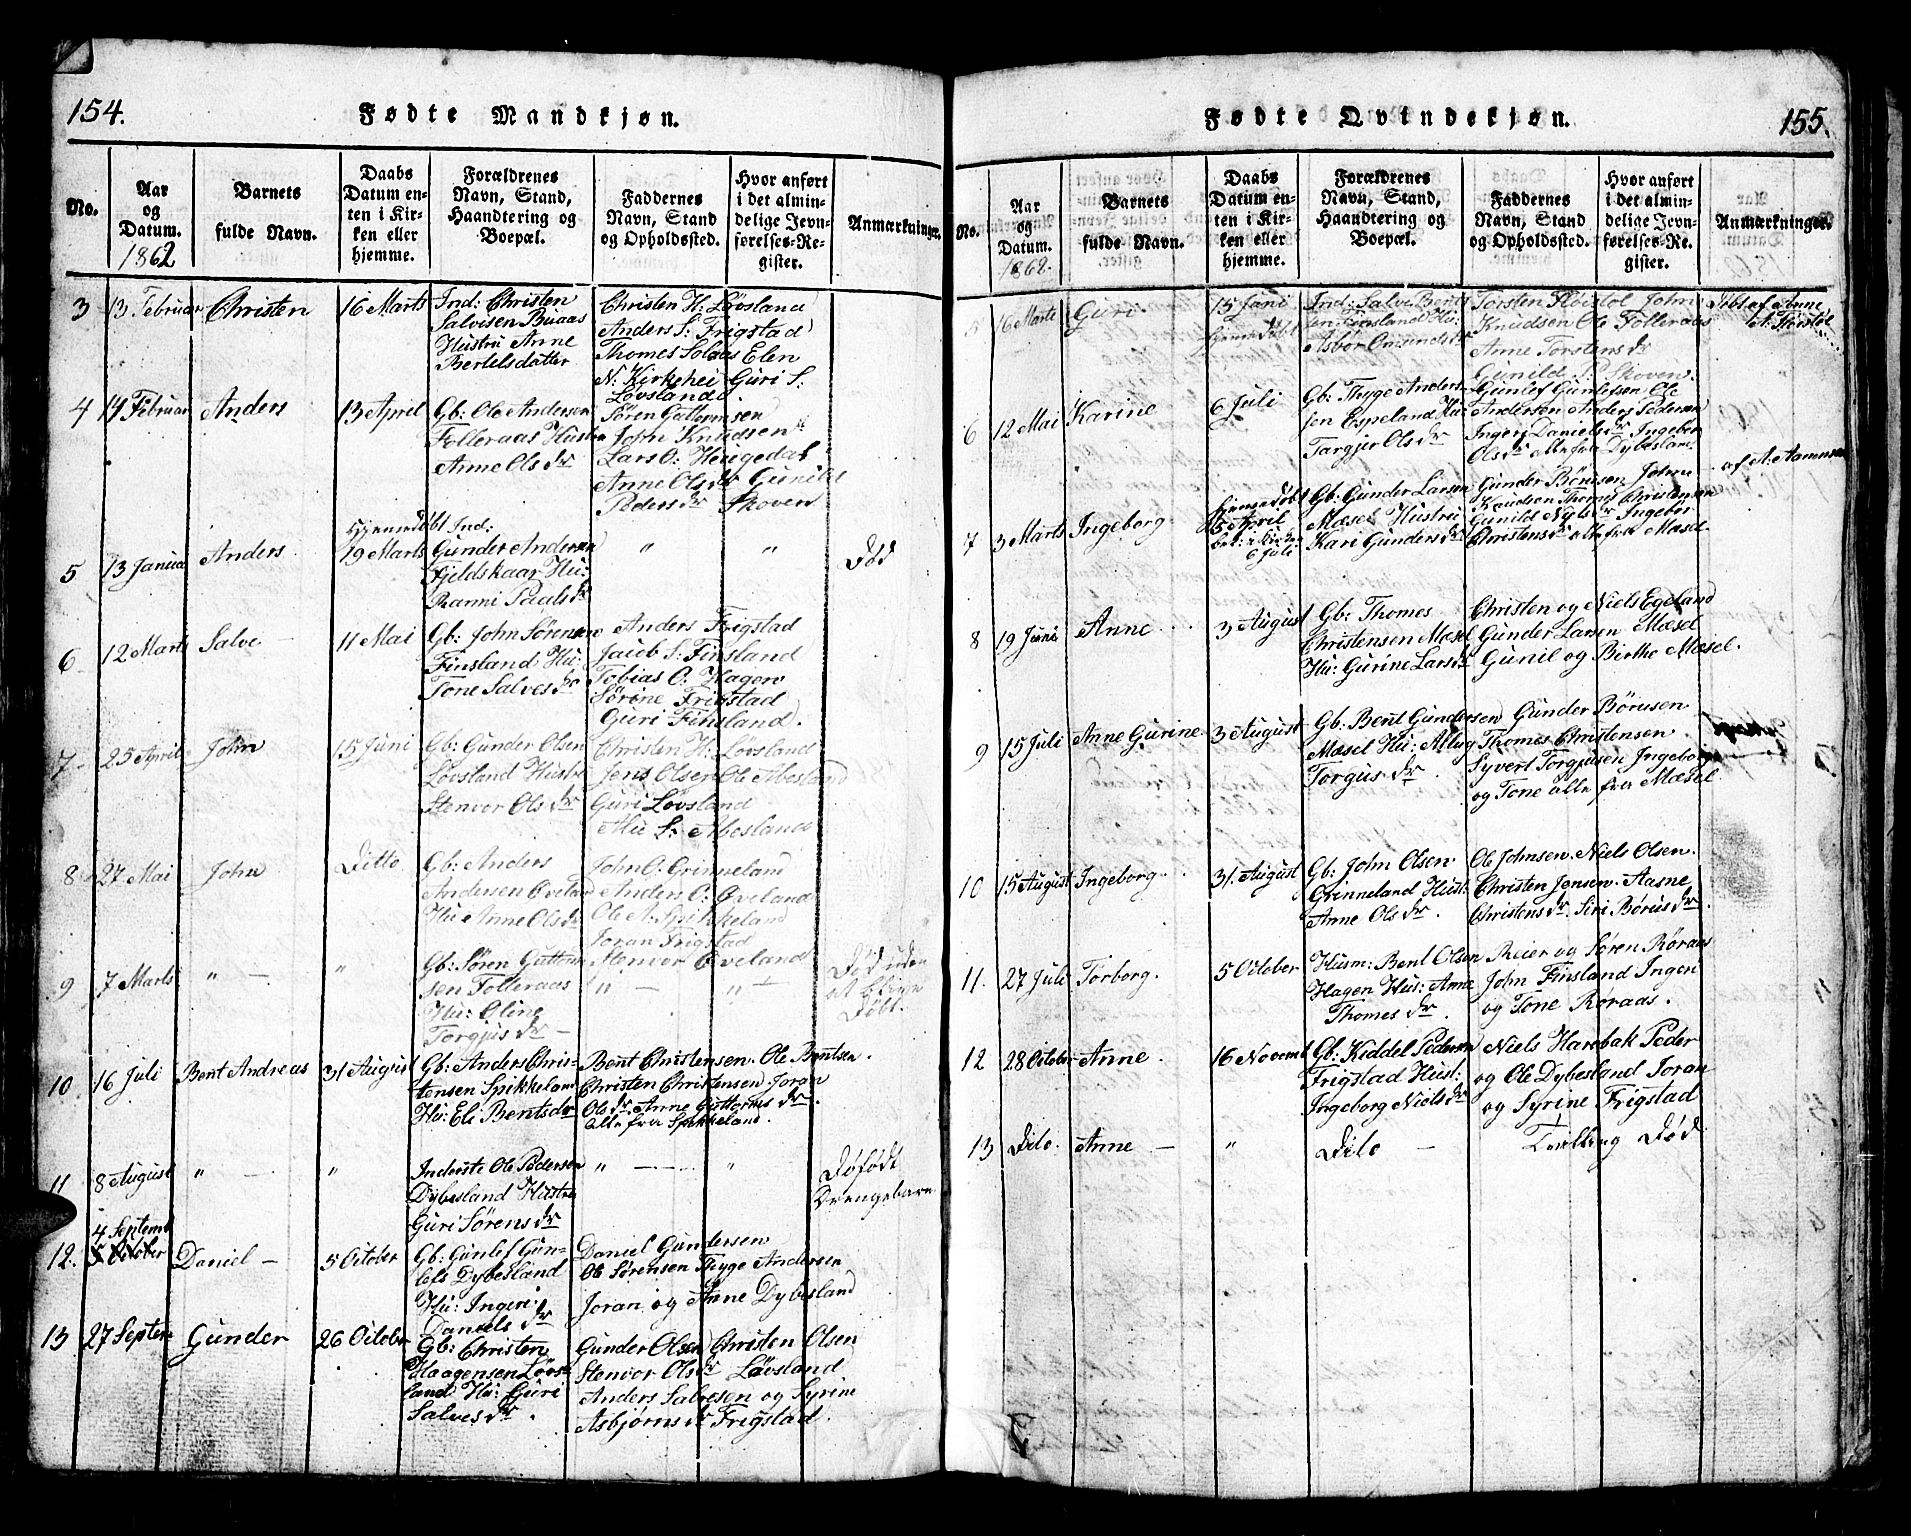 154.
Fødte Mandkjøn.
No.
Aar og Datum. 1862
Barnets fulde Navn.
Daabs Datum enten i Kirken eller hjemme.
Forældrenes Navn, Stand, Haandtering og Boepæl.
Faddernes Navn, Stand og Opholdssted.
Hvor anført i det almindelige Jevnførelses-Register.
Anmærkninger.
3 13 Februar Christen 16 Marts
Ind: Christen
Salvisen Buaas
Hustru Anne
Bertelsdatter
Christen H: Løvsland
Anders S: Frigstad
Thomes Elen
N: Kirkehei Guri S:
Løvsland
4 14 Februar Anders 13 April
Gb: Ole Andersen
Folleraas Hustru
Anne Olsdr
Sören Guttormsen
John Knudsen
Lars O: Heugedal
Anne Olsdr Gunild
Pedersdr Skoven
5 13 Januar Anders
Hjemmedöbt
19 Marts
Ind:
Gunder Andersen
Fjeldskaar Hu:
Ranni Paalsdr
" "
Död
6 12 Marts Salve 11 Mai
Gb: John Sørensen
Finsland Hu:
Tone Salvesdr
Anders Frigstad
Jacob S: Finsland
Tobias O: Hagen
Sørine Frigstad
Guri Finsland.
7 25 April John 15 Juni
Gb: Gunder Olsen
Løvsland Hustr
Stenvor Olsdr
Christen H: Løvsland
Jens Olsen Ole Abesland
Guri Løvsland
S: Abesland
8 27 Mai John Ditto
Gb: Anders
Andersen Øveland
Hu Anne Olsdr
John O: Grinneland
Anders O: Øveland
Ole A: Spikkeland
Joran Frigstad
Stenvor Øveland
9 7 Marts " — "
Gb: Søren Guttorm
sen Folleraas
Hu: Oline
Torgjusdr —
" — " —
Död uden
at blive
Döbt.
10 16 Juli Bent Andreas 31 August
Gb: Anders Chris-
tensen Spikkeland
Hu: Eli Bentsdr
Bent Christensen. Ole Bentsen.
Christen Christensen Joran
Olsdr Anne Guttormsdr.
alle fra Spikkeland.
11 8 August " — "
Inderste Ole Pedersen
Dybesland Hustru
Guri Sørensdr
" — "
Døfødt
Drengebarn
12. 4 Septemb
5 October
Daniel — 5 October
Gb: Gunlef Gun-
lefs Dybesland
Hu: Ingeri
Danielsdr
Daniel Gundersen
Ole Sørensen Thyge Andersen
Joran og Anne Dybesland
13 27 Septem Gunder 26 October
Gb: Christen
Haagensen Løvs-
land Hu: Guri
Salvesdr.
Gunder Olsen Christen Olsen
Stenvor Olsdr Løvsland
Anders Salvesen og Syrine
Asbjørnsdr Frigstad.
155.
Fødte Qvindekjøn.
No.
Aar og Datum. 1862.
Barnets fulde Navn.
Daabs Datum enten i Kirken eller hjemme.
Forældrenes Navn, Stand, Haandtering og Boepæl.
Faddernes Navn, Stand og Opholdssted.
Hvor anført i det almindelige Jevnførelses-Register.
Anmærkninger.
5 16 Marts Guri 15 Juni
Hjemmedöbt
Ind: Salve Bent
sen Finsland Hu:
Asbor Omundsdr
Torsten Høistøl John
Knudsen Ole Folleraas
Anne Torstensdr
Gunild P: Skoven.
Döbt af Anne
A: Høistøl
6 12 Mai Karine 6 Juli
Gb: Thyge Anders
sen Espeland Hu:
Targjer Olsdr
Gunlef Gunlefsen Ole
Andersen Anders Pedersen
Ingeri Danielsdr Ingebor
Olsdr alle fra Dybesland
7 3 Marts Ingeborg
Hjemmedöbt
5 April
6 Juli
Gb: Gunder Larsen
Mæsel Hustru
Kari Gundersdr
Gunder Börusen John
Knudsen Thomes Christensen
Gunild Nilsdr Ingebor
Christensdr alle fra Mæsel
af A: Aamunsen
8 19 Juni Anne 3 August
Gb: Thomes
Christensen Mæsel
Hu: Gurine Larsdr
Christen og Niels Egeland
Gunder Larsen Mæsel
Gunil og Birthe Mæsel.
9 15 Juli Anne Gurine 3 August
Gb: Bent Gundersen
Mæsel Hu: Allug
Torgusdr.
Gunder Børusen
Thomes Christensen
Syvert Torgjusen Ingeborg
og Tone alle fra Mæsel
10 15 August Ingeborg. 31. August
Gb: John Olsen
Grinneland Hust:
Anne Olsdr.
Ole Johnsen. Niels Olsen.
Christen Jensen. Aasne
Christensdr. Siri Børusdr
11. 27 Juli Torborg. 5 October
Husm: Bent Olsen
Hagen Hus: Anne
Thomesdr.
Reier og Søren Røraas
John Finsland Inger
og Tone Røraas.
12 28 October Anne. 16 Novemb
Gb: Kiddel Pedersen
Frigstad Hust:
Ingeborg Nielsdr
Niels Harebak Peder
og Ole Dybesland Joran
og Syrine Frigstad
13 Dito. Anne — " Dito — Tvilling Död